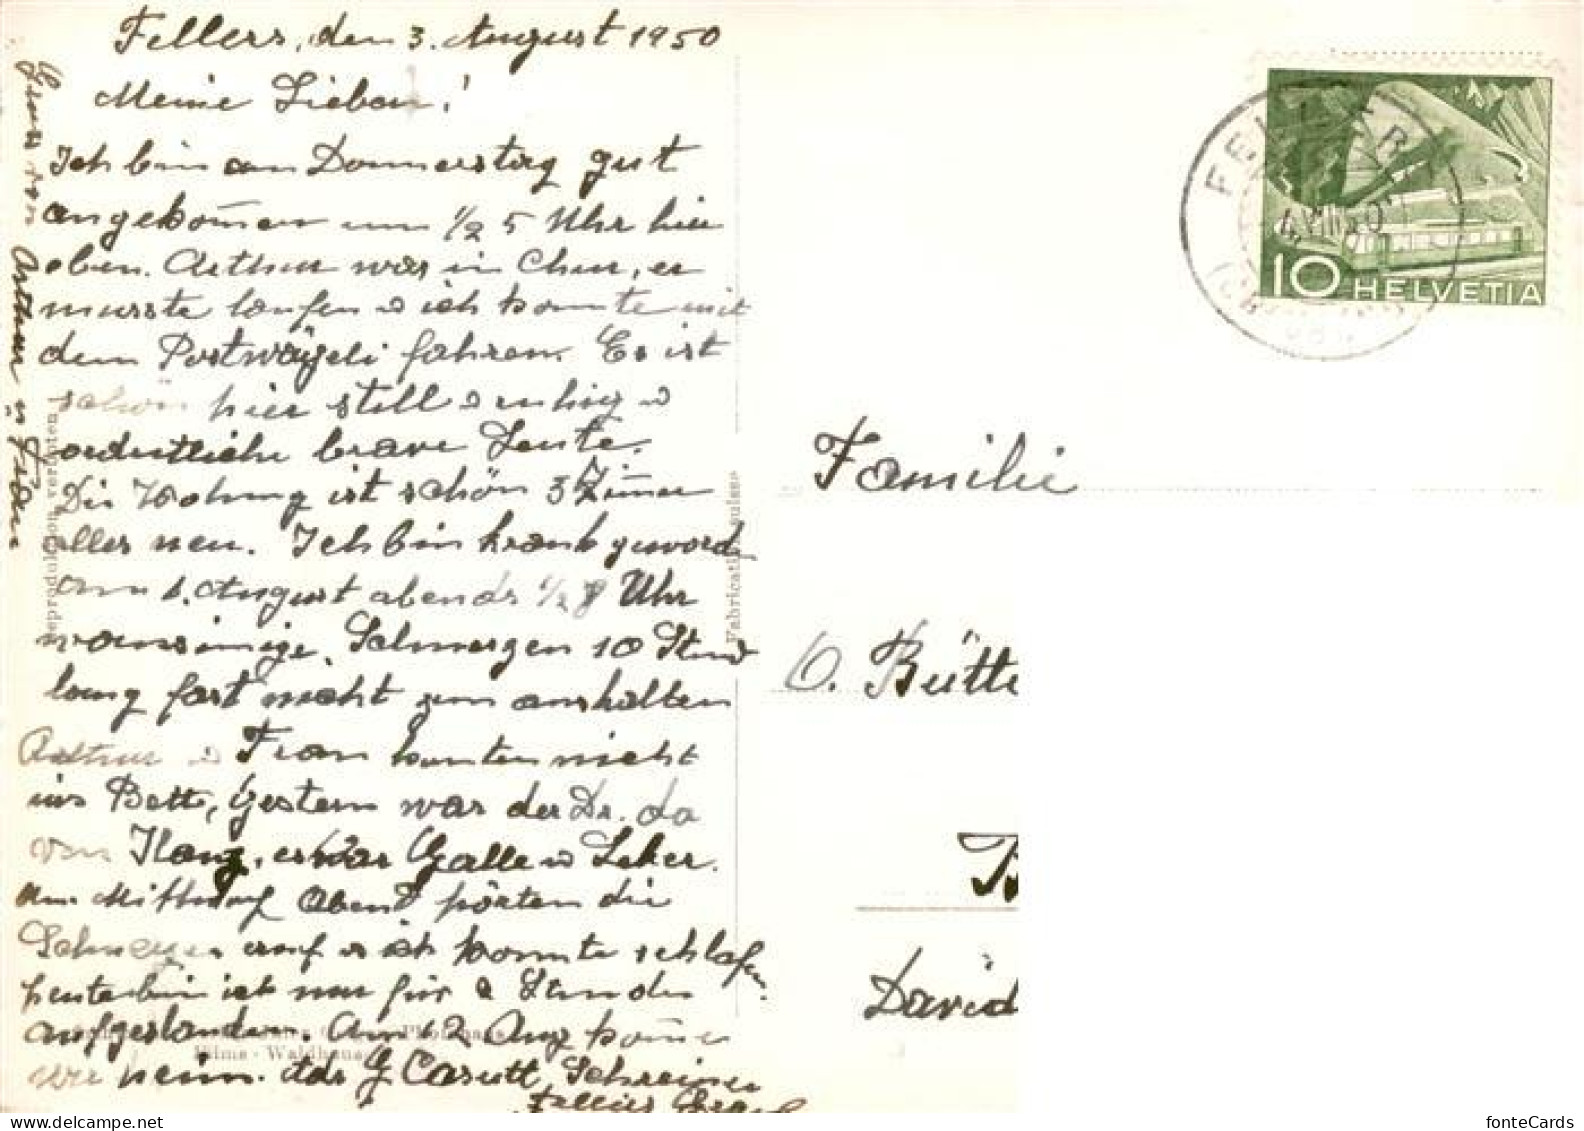 Fellers, den 3. August 1950
Meine Lieben!
Ich bin am Donnerstag gut
angekom̄en um 1/2 5 Uhr hier
oben. Arthur war in Chur, er
musste laufen u ich konnte mit
dem Postwägeli fahren. Es ist
schön hier still u ruhig u
ordentliche brave Leute.
Die Wohnung ist schön 3 Zim̄er
alles neu. Ich bin krank geword
am 1. August abends 1/2 8 Uhr
wansinnige Schmerzen 10 Stund
lang fast nicht zum aushalten
Arthur u Frau konnten nicht
ins Bett, Gestern war der Dr. da
von Ilanz, es war Galle u Leber.
Am Mittwoch Abend hörten die
Schmerzen auf u ich konnte schlafen.
heute bin ich nur für 2 Stunden
aufgestanden. Am 12 Aug kom̄en
wir heim. Adr G Casutt, Schreiner
Fellers
Gruss von Arthur u Frau
Reproduktion verboten
Fabrication suisse
Films - Waldhaus
FELLERS
4.VIII.50
10 HELVETIA
Familie
O. Bütt
David
fonteCards